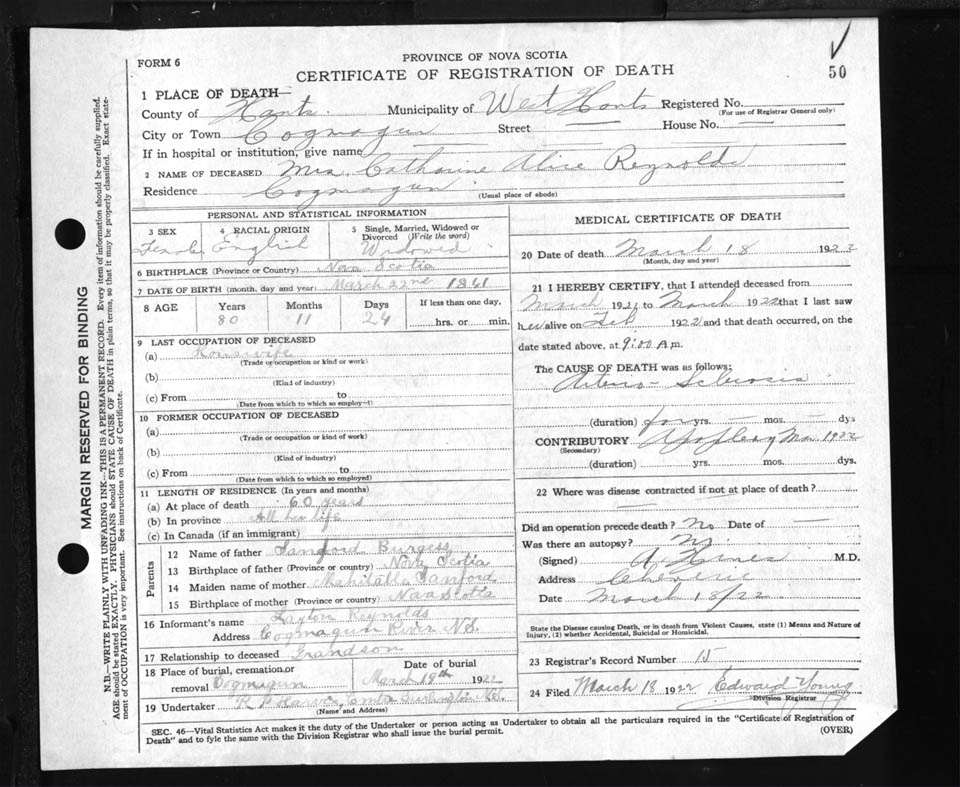 50
FORM 6
PROVINCE OF NOVA SCOTIA
CERTIFICATE OF REGISTRATION OF DEATH
MARGIN RESERVED FOR BINDING
N.B.—WRITE PLAINLY WITH UNFADING INK—THIS IS A PERMANENT RECORD. Every item of information should be carefully supplied.
AGE should be stated EXACTLY. PHYSICIANS should STATE CAUSE OF DEATH in plain terms, so that it may be properly classified. Exact state-
ment of OCCUPATION is very important. See instructions on back of Certificate.
1 PLACE OF DEATH—
County of Hants. Municipality of West Hants Registered No.
(For use of Registrar General only)
City or Town Cogmagun Street — House No. —
If in hospital or institution, give name
2 NAME OF DECEASED Mrs. Catharine Alice Reynolds
Residence Cogmagun
(Usual place of abode)
PERSONAL AND STATISTICAL INFORMATION
3 SEX Female
4 RACIAL ORIGIN English
5 Single, Married, Widowed or Divorced (Write the word) Widowed
6 BIRTHPLACE (Province or Country) Nova Scotia
7 DATE OF BIRTH (month, day and year) March 22nd 1841
8 AGE Years 80 Months 11 Days 24 If less than one day, hrs. or min.
9 LAST OCCUPATION OF DECEASED
(a) Housewife
(Trade or occupation or kind or work)
(b)
(Kind of industry)
(c) From to
(Date from which to which so employed)
10 FORMER OCCUPATION OF DECEASED
(a)
(Trade or occupation or kind of work)
(b)
(Kind of industry)
(c) From to
(Date from which to which so employed)
11 LENGTH OF RESIDENCE (In years and months)
(a) At place of death 60 years
(b) In province All her life
(c) In Canada (if an immigrant)
Parents
12 Name of father Sanford Burgess
13 Birthplace of father (Province or Country) Nova Scotia
14 Maiden name of mother Sanford
15 Birthplace of mother (Province or country) Nova Scotia
16 Informant's name Layton Reynolds
Address Cogmagun River N.S.
17 Relationship to deceased Grandson
18 Place of burial, cremation or removal Cogmagun
Date of burial March 19th 1922
19 Undertaker
(Name and Address)
MEDICAL CERTIFICATE OF DEATH
20 Date of death March 18 1922
(Month, day and year)
21 I HEREBY CERTIFY, that I attended deceased from
March 1921 to March 1922 that I last saw
her alive on Feb 1922 and that death occurred, on the
date stated above, at 9:00 A.m.
The CAUSE OF DEATH was as follows:
Arterio-Sclerosis
(duration) for yrs. mos. dys
CONTRIBUTORY Apoplexy Mar 1922
(Secondary)
(duration) yrs. mos. dys.
22 Where was disease contracted if not at place of death?
—
Did an operation precede death? No Date of —
Was there an autopsy? No
(Signed) A. Hines M.D.
Address Cheverie
Date March 18/22
State the Disease causing Death, or in death from Violent Causes, state (1) Means and Nature of
Injury, (2) whether Accidental, Suicidal or Homicidal.
23 Registrar's Record Number 15
24 Filed March 18 1922 Edward Young
Division Registrar
SEC. 46—Vital Statistics Act makes it the duty of the Undertaker or person acting as Undertaker to obtain all the particulars required in the "Certificate of Registration of
Death" and to fyle the same with the Division Registrar who shall issue the burial permit.
(OVER)